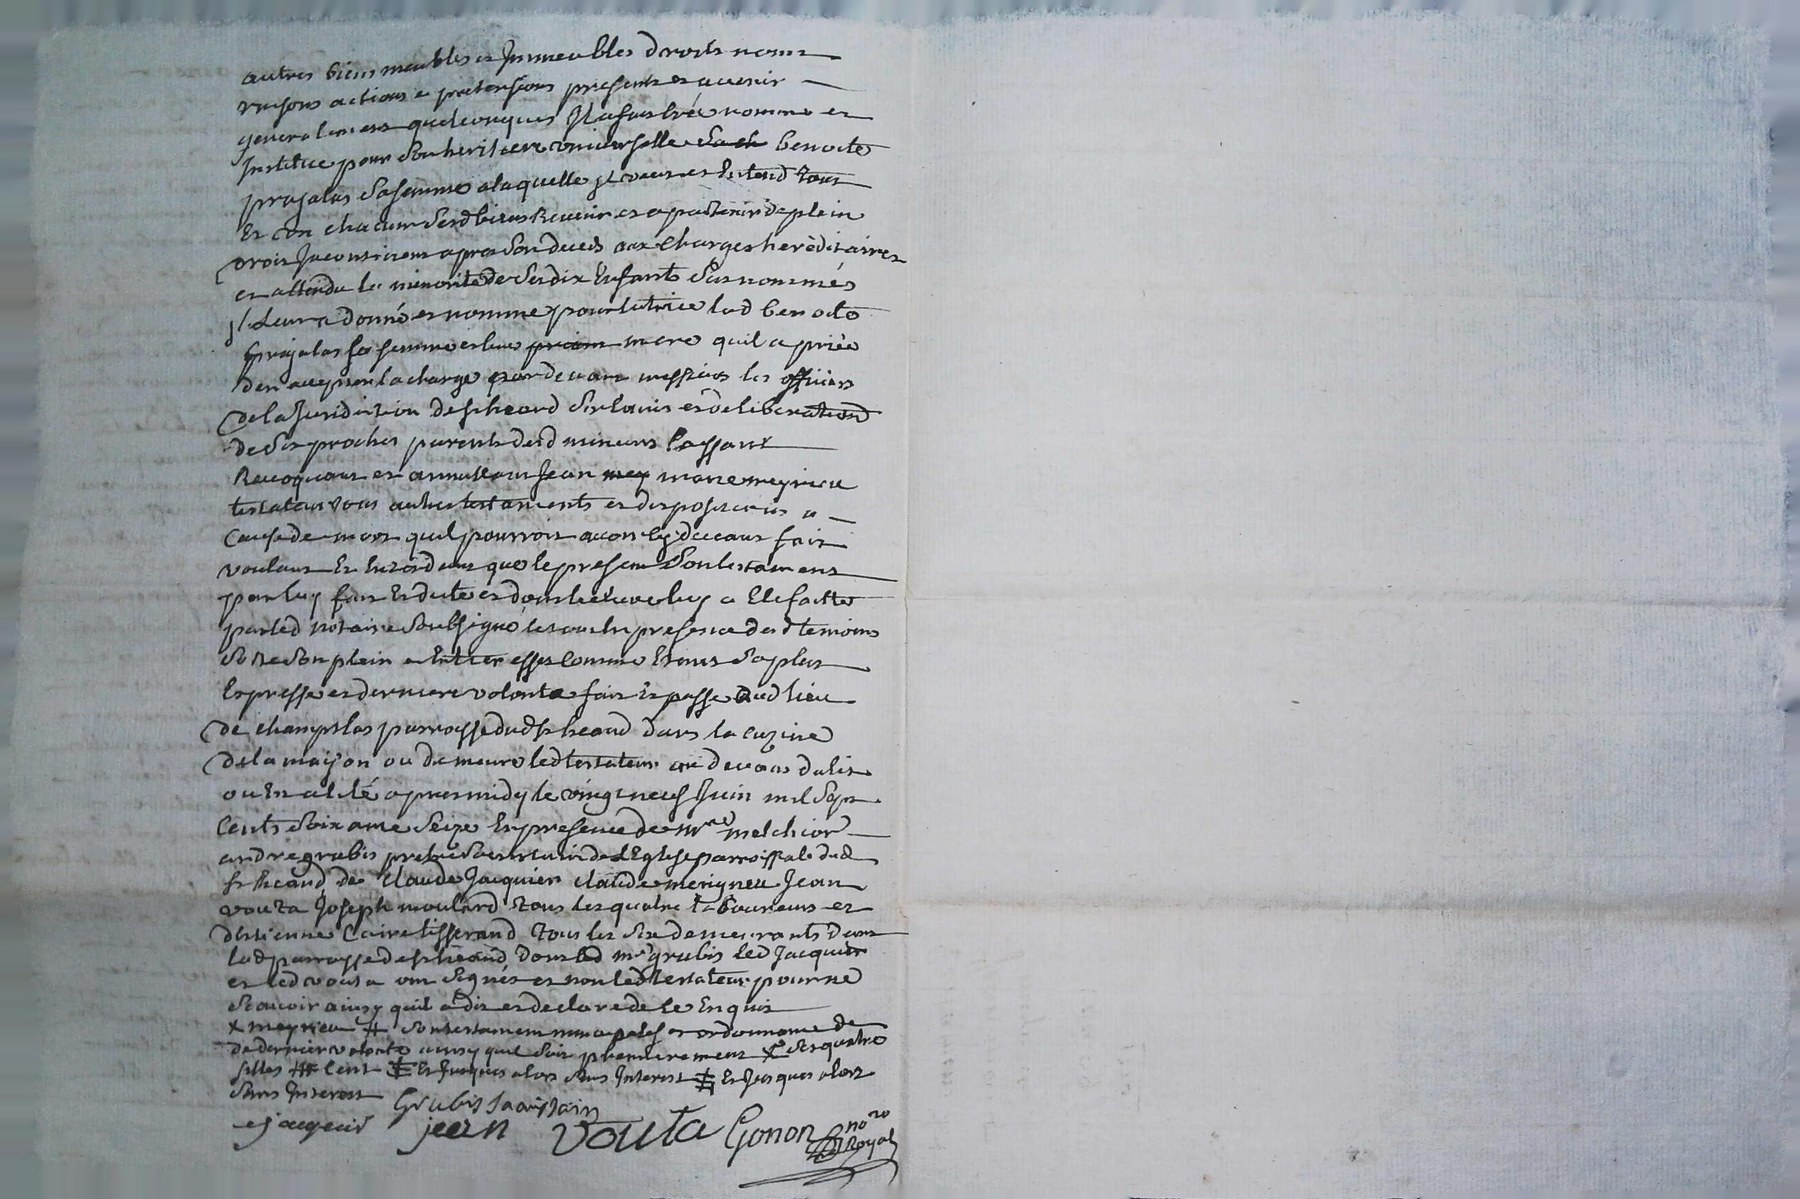 autres biens meubles et Immeubles droits noms
raisons actions et pretensions presents et avenir
generalement quelconques Il a fait créé nomme et
Institue pour son heritiere universelle benoite
prajalas sa femme a laquelle il veut et Entend tous
Et un chacun sesd biens Revenir et apartenir de plein
droit Incontinent apres son deceds aux charges herèditaires
et attendu la minorité de ses dix Enfants sus nommés
il leur a donné et nommé pour tutrice lad benoite
prajalas sa femme et leur mere quil a priée
den accepter la charge pardevant messieurs les officiers
de la Juridiction de st heand sur lavis et deliberation
de ses proches parents desd mineurs Cassant
Revoquant et annullant Jean marc meyrieu
testateur tous autres testaments et dispositions a
Cause de mort quil pourroit avoir cy devant fait
voulant Et Entendant que le present son testament
par luy fait Et dicté et dont lecture luy a Eté faitte
par led notaire soussigné le tout En presence desd temoins
sorte son plein et Entier effet comme Etant sa plus
Expresse et derniere volonté fait Et passé aud lieu
de champtlas parroisse dud st heand dans la cuzine
de la maison ou demeure led testateur au devant du lit
ou Est alité apres midy le vingt neuf Juin mil sept
Cents soixante seize En presence de mre melchior
andre grubis prebé sacristain de lEglise parroissiale dud
st heand de Claude Jacquier claude merigneu Jean
vouta Joseph moulard tous les quatre laboureurs et
detienne Coire tisserand tous les six demeurants dans
lad parroisse de st heand dont led mr grubis led Jacquier
et led vouta ont signés et non led testateur pour ne
scavoir ainsy quil a dit et declaré de ce Enquis
x meyrieu # son testament nuncupatif et ordonnance de
de derniere volonté ainsy que suit premierement x ses quatre
filles # Cent Et jusques alors sans Interest Et Jusques alors
sans Interest
Grubis Sacristain
ejacquier jean vouta Gonon nore Royal